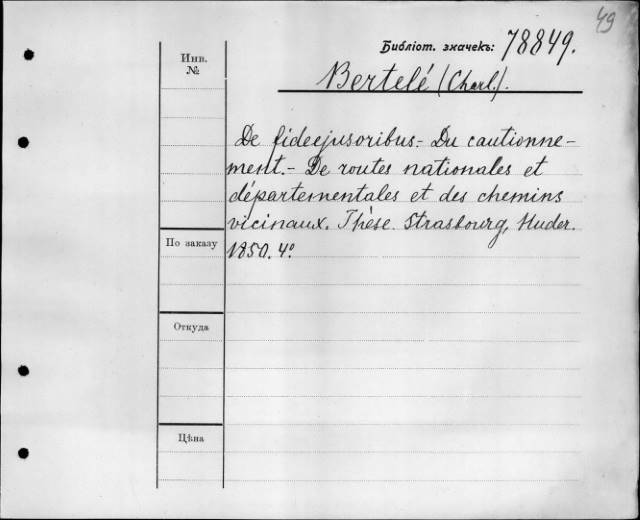 49
Библіот. значекъ: 78849.
Инв.
№
Bertelé (Charl.).
De fideejusoribus.- Du cautionne-
ment.- De routes nationales et
départementales et des chemins
vicinaux. Thèse. Strasbourg, Huder.
По заказу
1850. 4º
Откуда
Цѣна